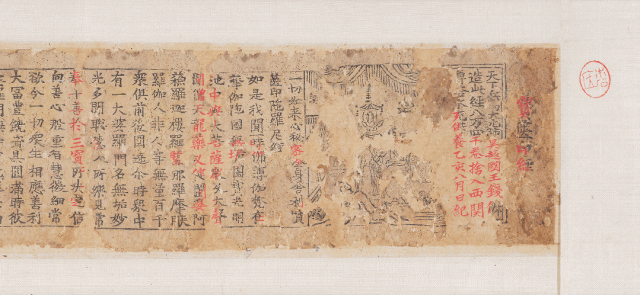 天下兵馬大元帥吳越國王錢俶
造此經八万四千卷捨入西關
塼塔永充供養乙亥八月日紀
一切如來心秘密全身舍利寶
篋印陀羅尼經
如是我聞一時佛薄伽梵在
摩伽陀國無垢園寶光明
池中與大菩薩衆及大聲
聞僧天龍藥叉健闥婆阿
蘇羅迦樓羅緊那羅摩呼
羅伽人非人等無量百千
衆俱前後圍遶尒時衆中
有一大婆羅門名無垢妙
光多聞聰慧人所樂見常
奉十善於三寶所決定信
向善心殷重智慧微細常
欲令一切衆生相應善利
大富豐饒資具圓滿時彼